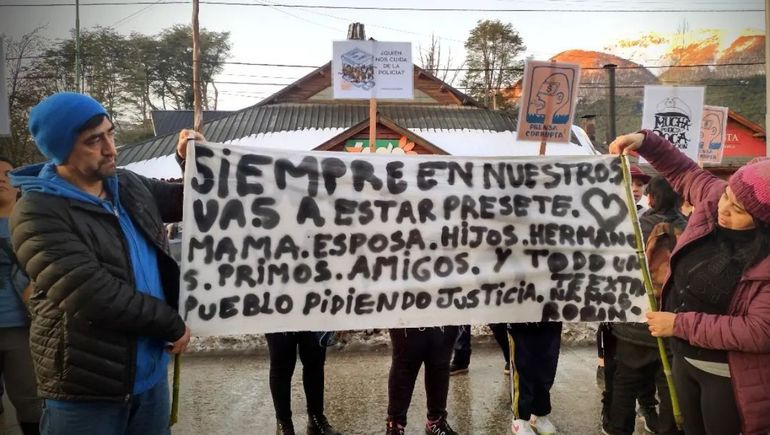 ¿QUIEN
NOS CUIDA
DE LA
POLICIA?
PRENSA
CORRUPTA
SIEMPRE EN NUESTROS
VAS A ESTAR PRESETE.
MAMA. ESPOSA. HIJOS. HERMANO
S. PRIMOS. AMIGOS. Y TODO UN
PUEBLO PIDIENDO JUSTICIA.
TE EXTRA
ÑAMOS
ROBIN